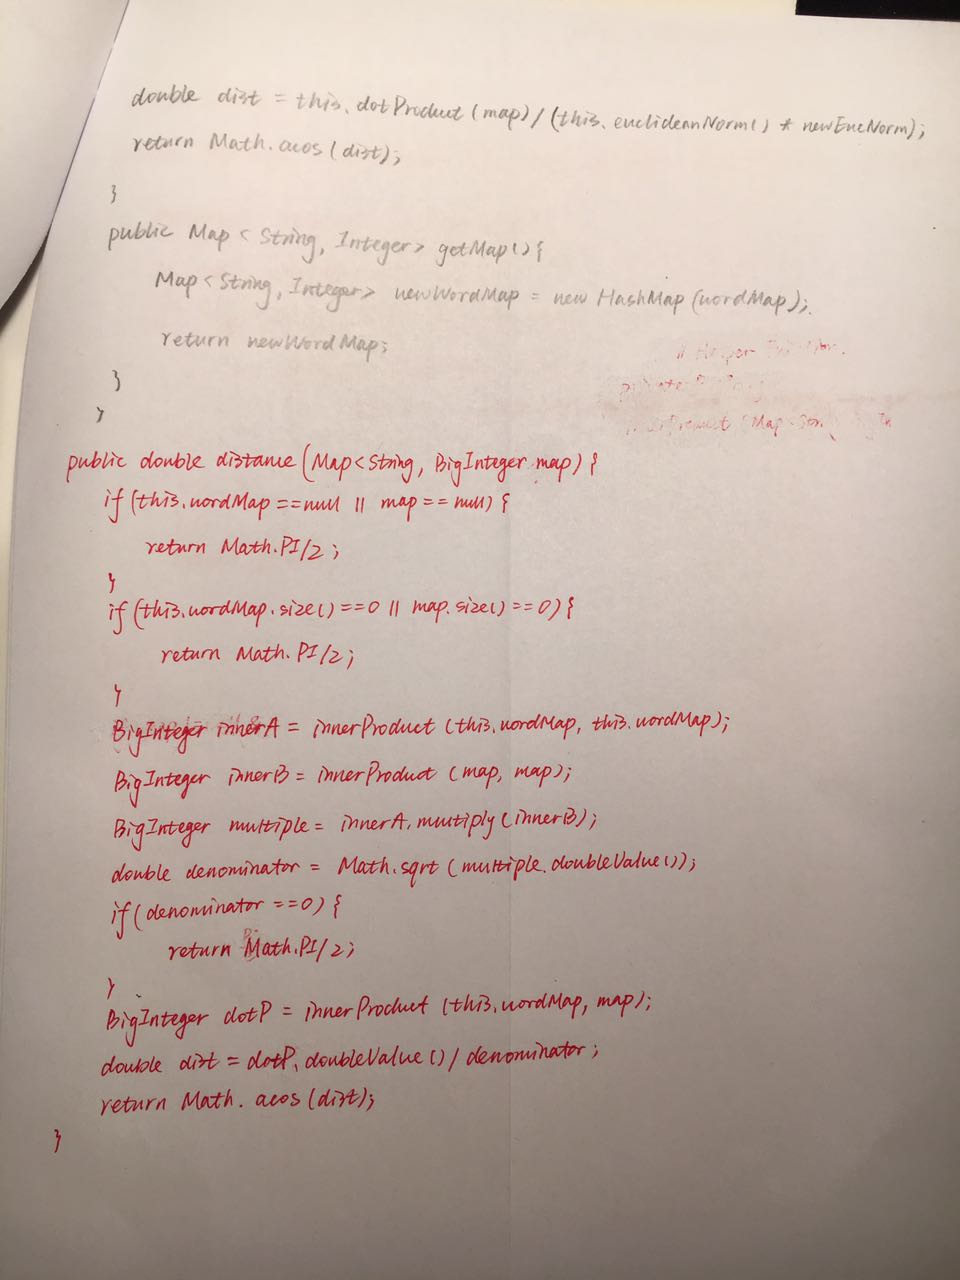 double dist = this.dotProduct(map)/(this.euclideanNorm() * newEucNorm);
return Math.acos(dist);
}
public Map<String, Integer> getMap(){
Map<String, Integer> newWordMap = new HashMap(wordMap);
return newWordMap;
}
}
// Helper
(Map
public double distance(Map<String, BigInteger map){
if(this.wordMap==null || map==null){
return Math.PI/2;
}
if(this.wordMap.size()==0 || map.size()==0){
return Math.PI/2;
}
BigInteger innerA = innerProduct(this.wordMap, this.wordMap);
BigInteger innerB = innerProduct(map, map);
BigInteger multiple = innerA.multiply(innerB);
double denominator = Math.sqrt(multiple.doubleValue());
if(denominator==0){
return Math.PI/2;
}
BigInteger dotP = innerProduct(this.wordMap, map);
double dist = dotP.doubleValue()/denominator;
return Math.acos(dist);
}